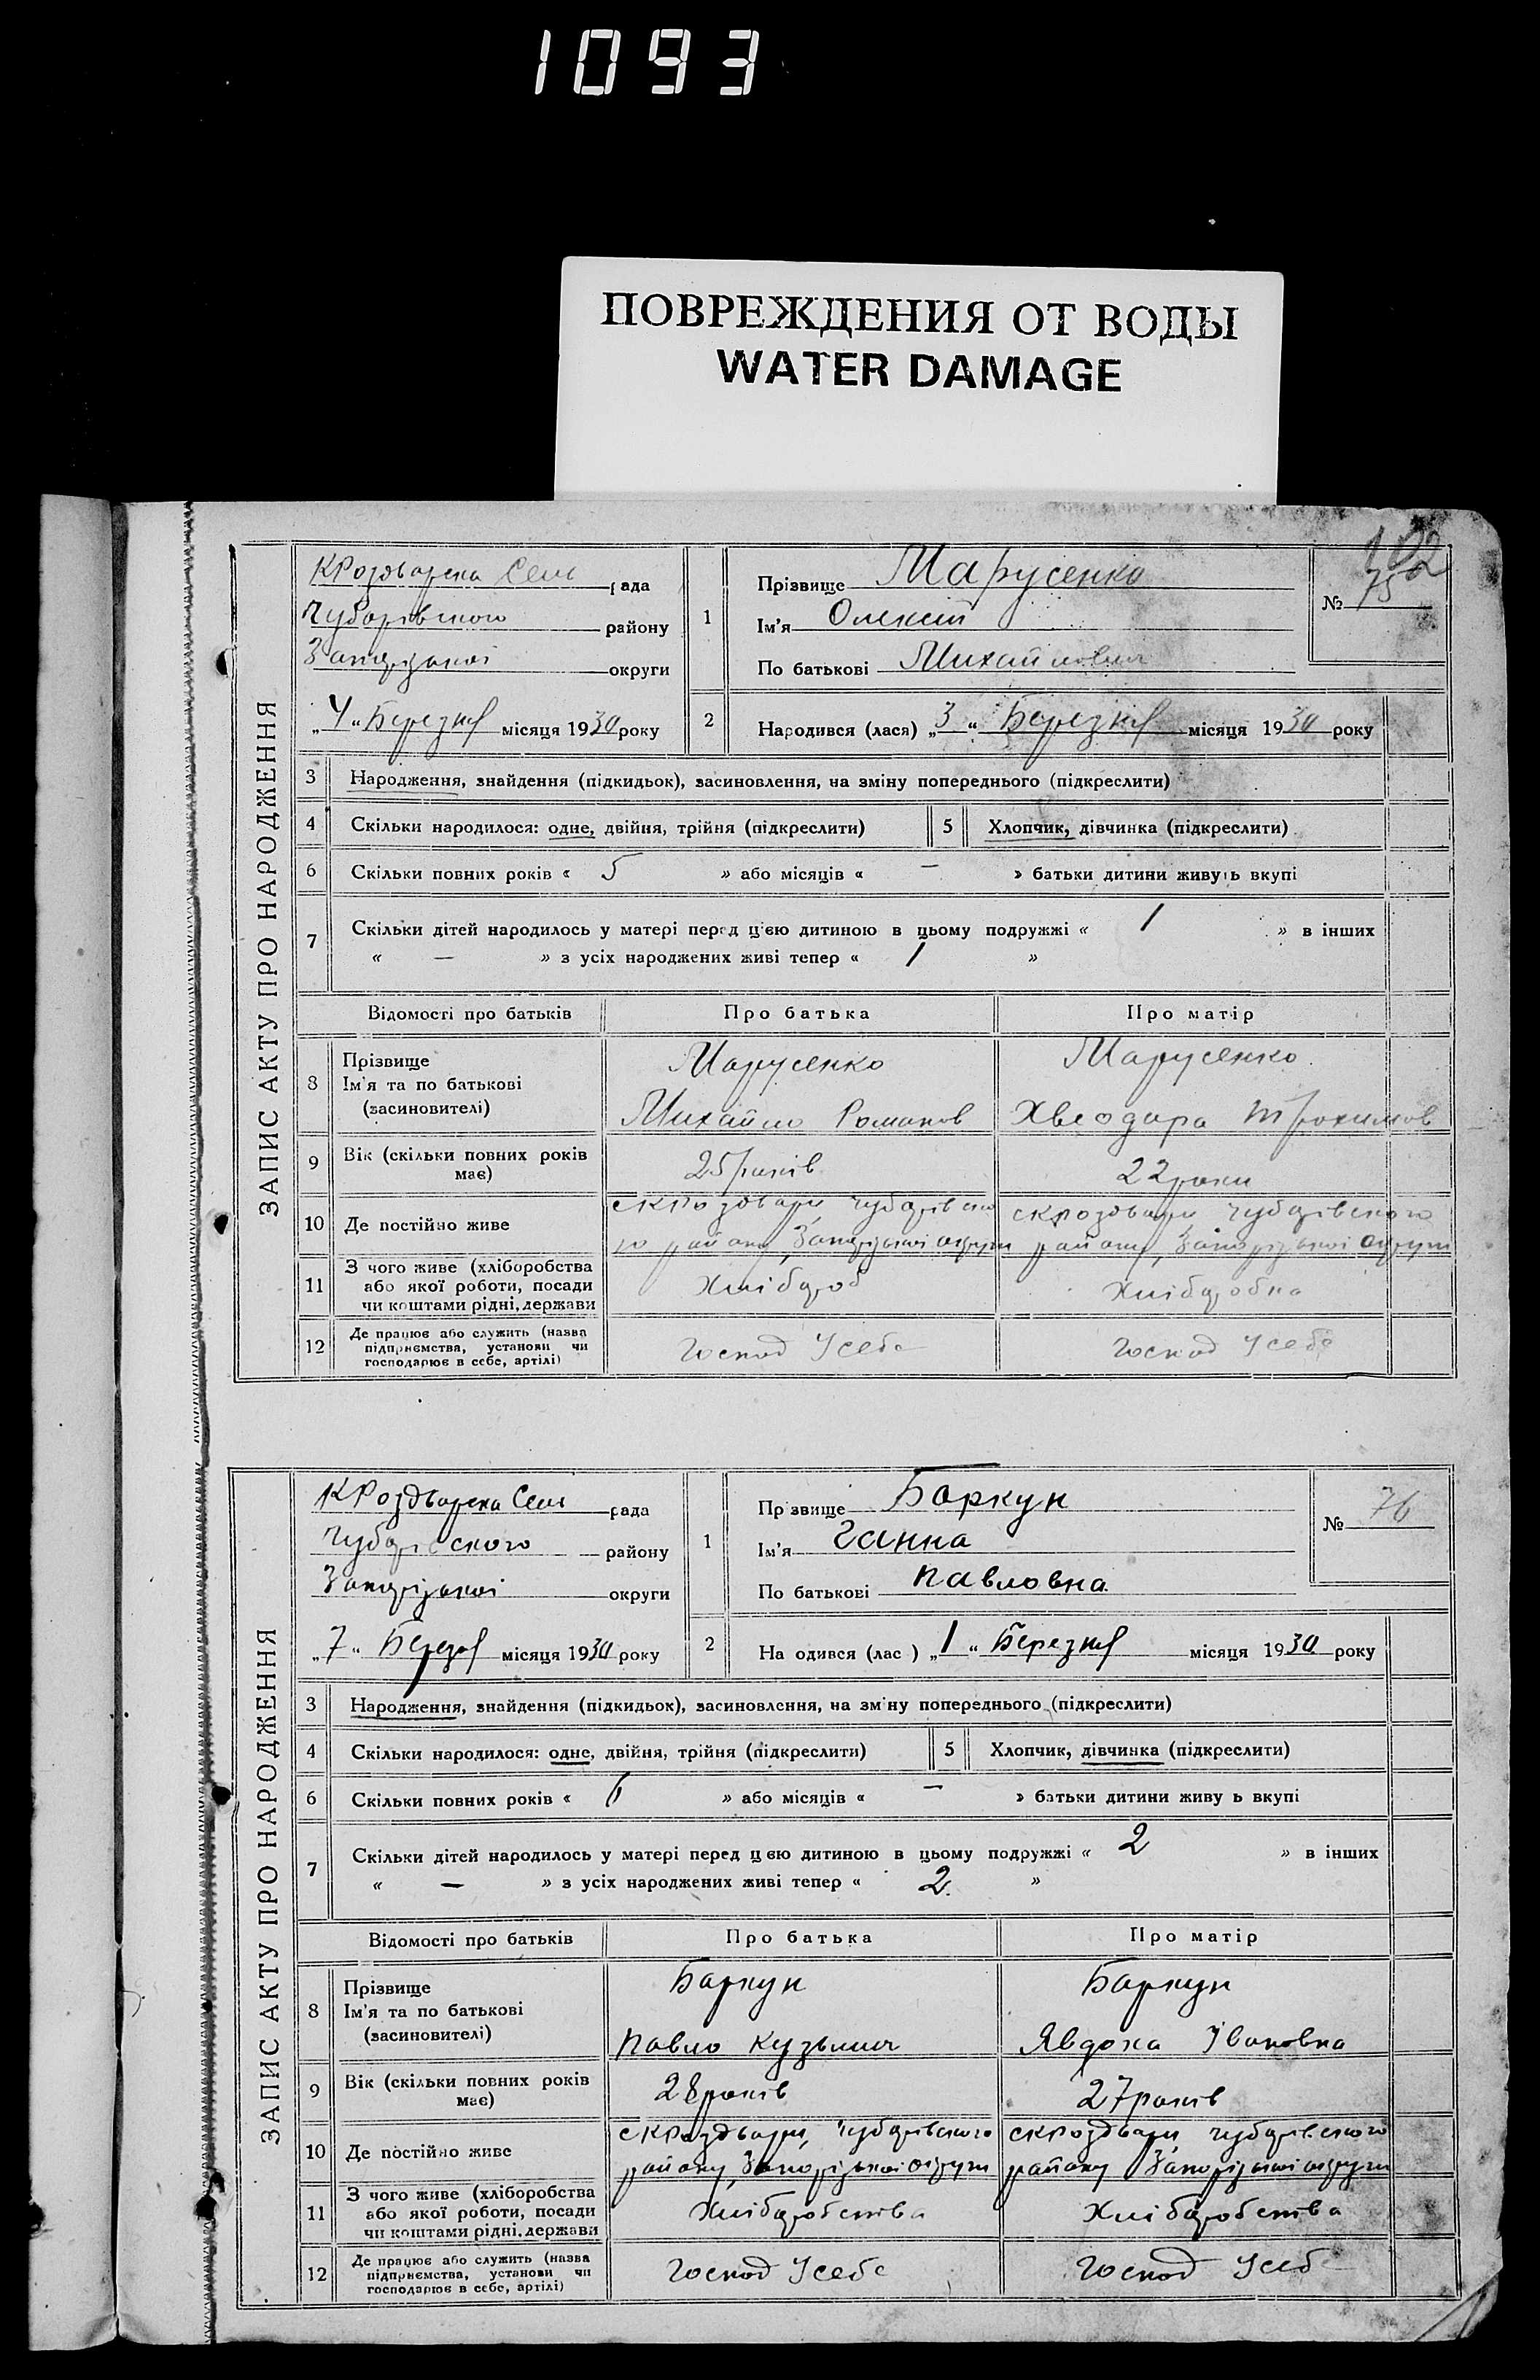 1093
ПОВРЕЖДЕНИЯ ОТ ВОДЫ
WATER DAMAGE
102
ЗАПИС АКТУ ПРО НАРОДЖЕННЯ
КРоздорска Сель рада
Чубарівського району
Запорізької округи
„4“ Березня місяця 1930 року
1
Прізвище Марусенко
Ім'я Олексій
По батькові Михайлович
№ 75
2 Народився (лася) „3“ Березня місяця 1930 року
3 Народження, знайдення (підкидьок), засиновлення, на зміну попереднього (підкреслити)
4 Скільки народилося: одне, двійня, трійня (підкреслити) 5 Хлопчик, дівчинка (підкреслити)
6 Скільки повних років « 5 » або місяців « — » батьки дитини живуть вкупі
7 Скільки дітей народилось у матері перед цією дитиною в цьому подружжі « 1 » в інших
« — » з усіх народжених живі тепер « 1 »
Відомості про батьків Про батька Про матір
8 Прізвище
Ім'я та по батькові
(засиновителі)
Марусенко
Михайло Романов
Марусенко
Хведора Трохимов
9 Вік (скільки повних років
має)
25 років
22 роки
10 Де постійно живе
Чубарівсько
го району, Запорізької округи
Чубарівського
району, Запорізької округи
11 З чого живе (хліборобства
або якої роботи, посади
чи коштами рідні, держави
Хлібороб
Хліборобка
12 Де працює або служить (назва
підприємства, установи чи
господарює в себе, артілі)
Господ Усебе
Господ Усебе
ЗАПИС АКТУ ПРО НАРОДЖЕННЯ
КРоздорска Сель рада
Чубарівського району
Запорізької округи
„7“ Березня місяця 1930 року
1
Прзвище Баркун
Ім'я Ганна
По батькові Павловна
№ 76
2 На одився (лас ) „1“ Березня місяця 1930 року
3 Народження, знайдення (підкидьок), засиновлення, на зміну попереднього (підкреслити)
4 Скільки народилося: одне, двійня, трійня (підкреслити) 5 Хлопчик, дівчинка (підкреслити)
6 Скільки повних років « 6 » або місяців « — » батьки дитини живу ь вкупі
7 Скільки дітей народилось у матері перед цією дитиною в цьому подружжі « 2 » в інших
« — » з усіх народжених живі тепер « 2 »
Відомості про батьків Про батька Про матір
8 Прізвище
Ім'я та по батькові
(засиновителі)
Баркун
Павло Кузьмич
Баркун
Явдоха Івановна
9 Вік (скільки повних років
має)
28 років
27 років
10 Де постійно живе
Чубарівського
району, Запорізької округи
Чубарівського
району Запорізької округи
11 З чого живе (хліборобства
або якої роботи, посади
чи коштами рідні, держави
Хліборобства
Хліборобства
12 Де працює або служить (назва
підприємства, установи чи
господарює в себе, артілі)
Господ Усебе
Господ Усебе